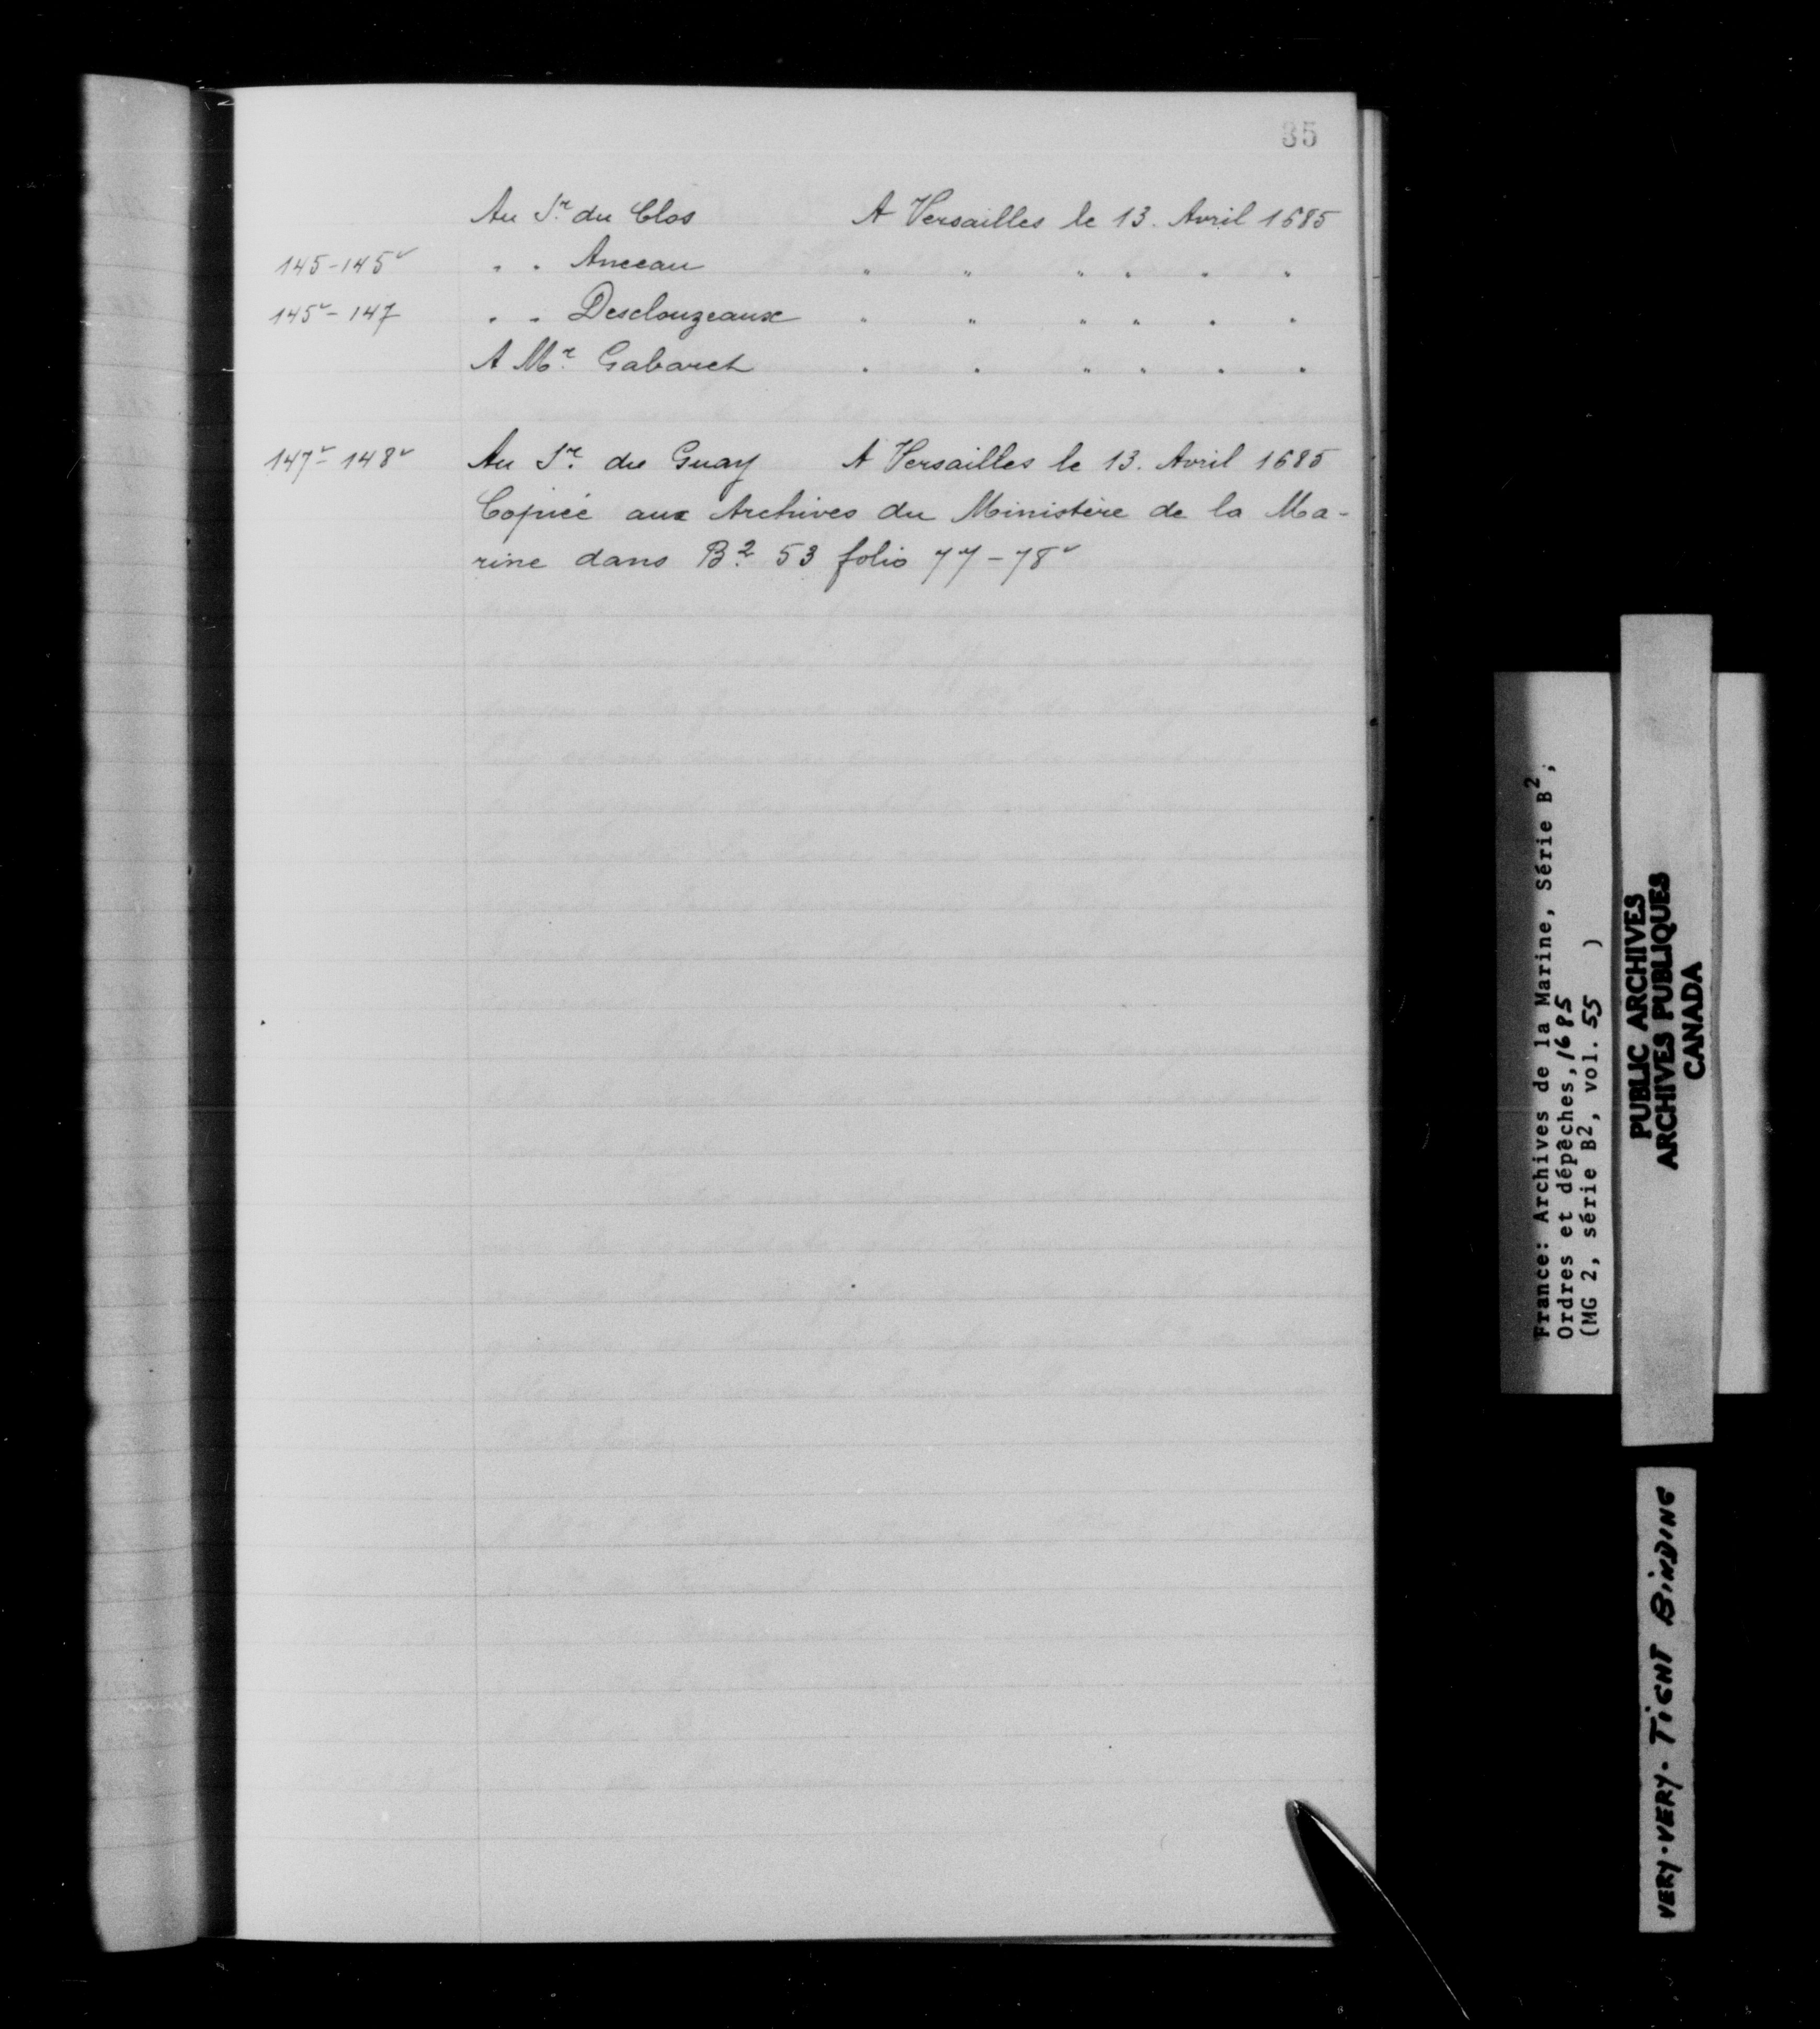 35
Au Sr. du Clos A Versailles le 13. Avril 1685
145-145v " " Anceau " " " " " "
145v-147 " " Desclouzeaux " " " " " "
A Mr. Gabaret " " " " " "
147v-148v Au Sr. du Guay A Versailles le 13. Avril 1685
Copiée aux Archives du Ministère de la Ma-
rine dans B2. 53 folio 77-78v
France: Archives de la Marine, Série B2,
Ordres et dépêches, 1685
(MG 2, série B2, vol. 55 )
PUBLIC ARCHIVES
ARCHIVES PUBLIQUES
CANADA
VERY-VERY-TIGHT BINDING